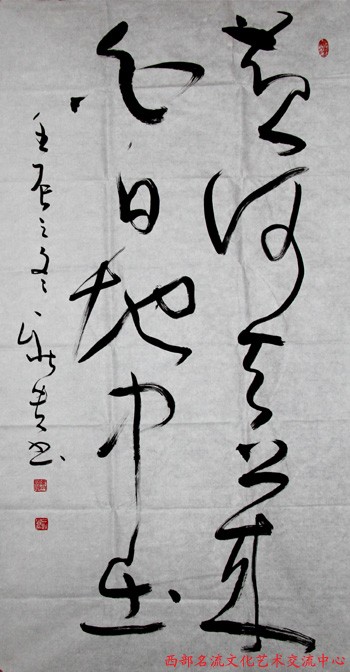 黄河天上来
白日地中出
壬辰之冬
书
西部名流文化艺术交流中心